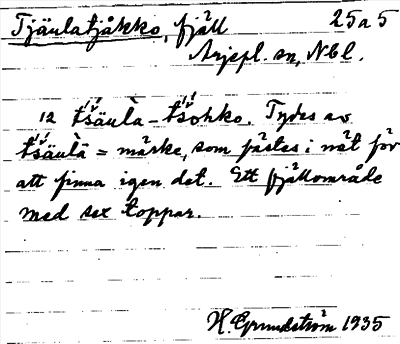 Tjäulatjåkko, fjäll 25a5
Arjepl. sn, Nbl.
12 t́šäuLà - t́šohko. Tydes av
t́šäuLà = märke, som fästes i nåt för
att finna igen det. Ett fjällområde
med sex toppar.
H. Grundström 1935